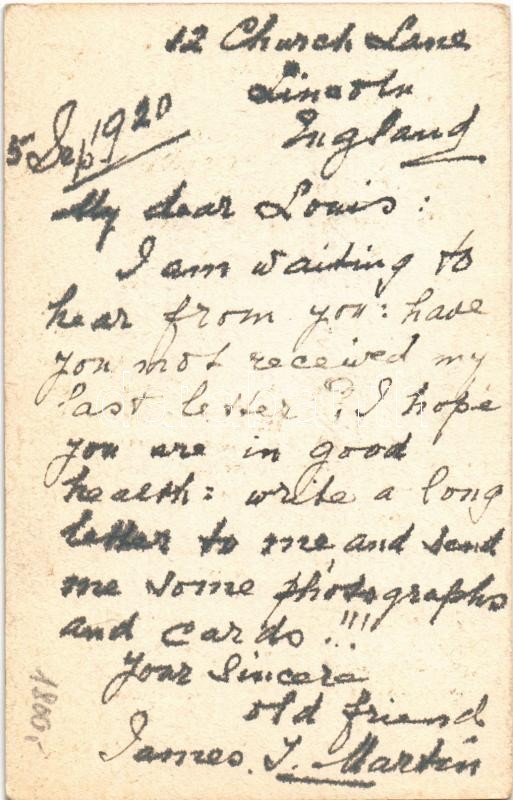 12 Church Lane
Lincoln
England
5 Sep 1920
My dear Louis:
I am waiting to
hear from you: have
you not received my
last letter? I hope
you are in good
health: write a long
letter to me and send
me some photographs
and cards!!!
Your Sincere
old friend
James. T. Martin
1800,